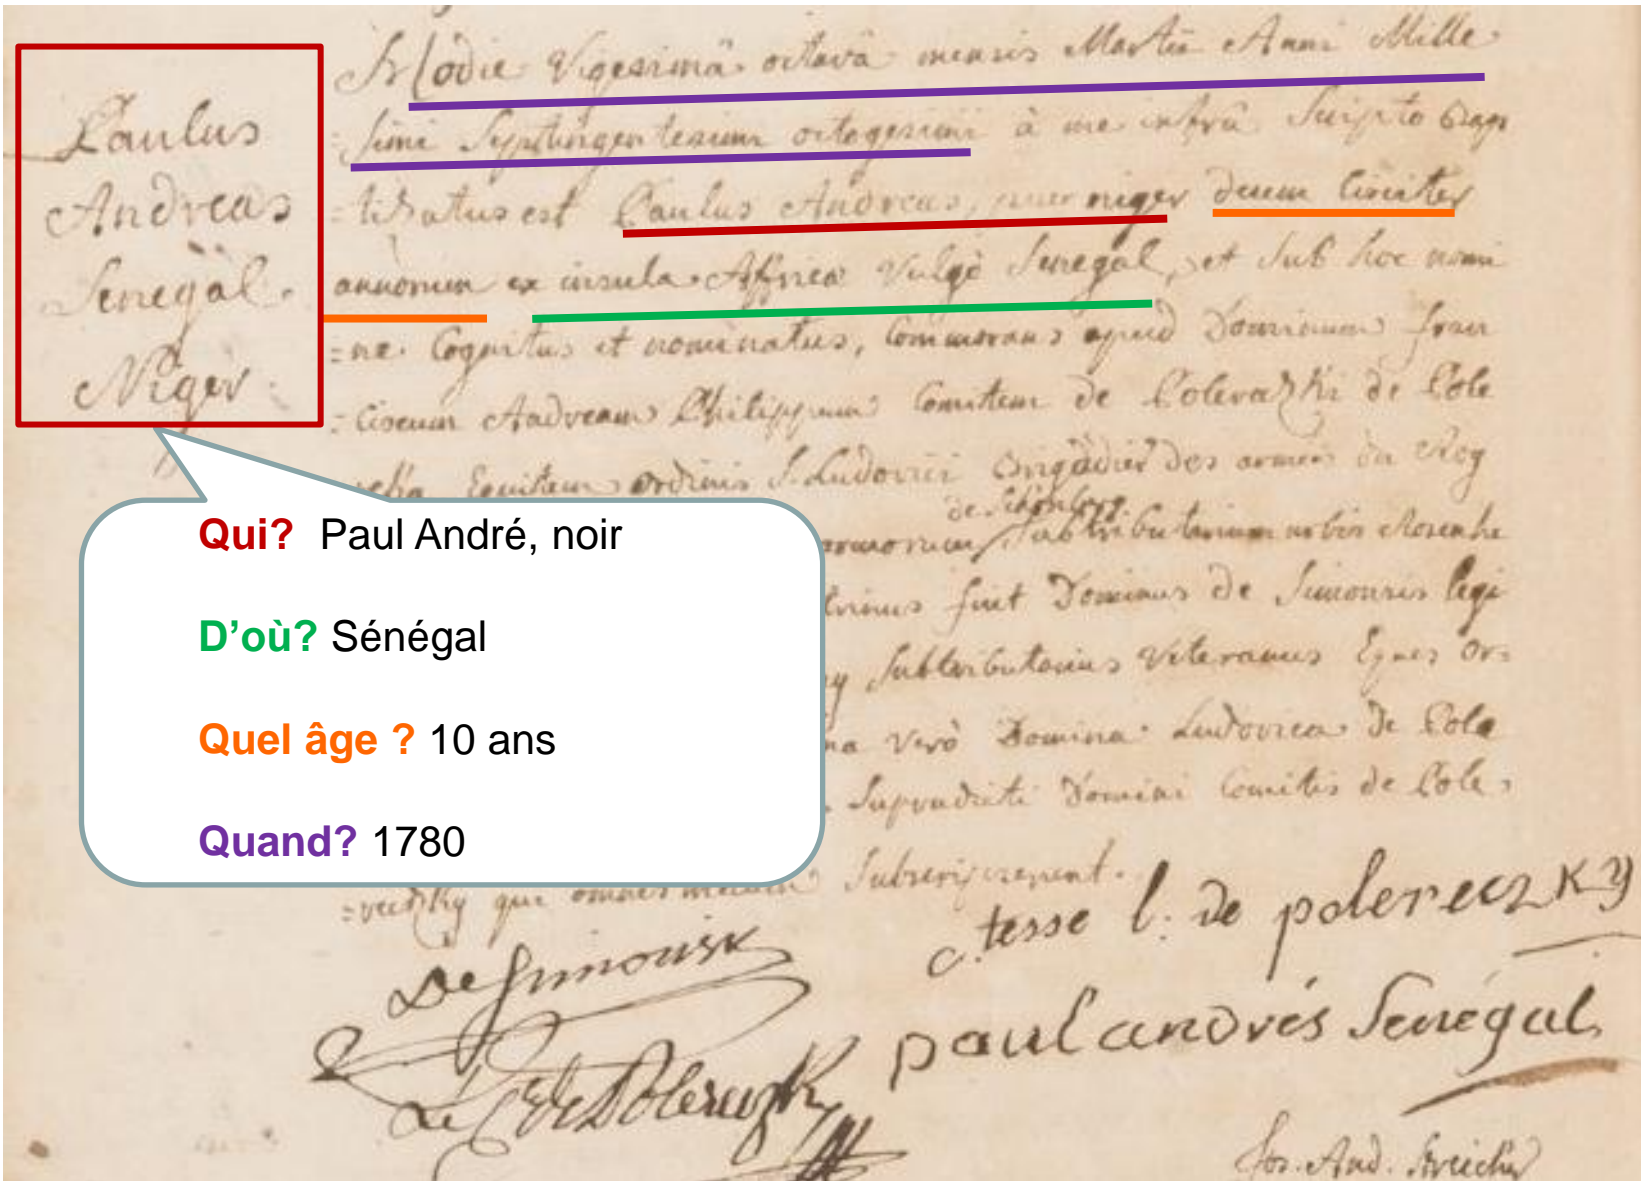 Paulus
Andreas
Senegàl
Niger
Hodie Vigesimâ octavâ mensis Martii Anni Mille
=simi Septingentesimi octogesimi à me infrà Scripto Bap
=tisatus est Paulus Andreas, puer niger decem Circiter
annorum ex insula Africa Vulgò Senegal, et sub hoc nomi
=ne Cognitus et nominatus, Commorans apud Dominum fran
=ciscum Andream Philippum Comitem de Polereczki de Pole
Equitem ordinis S. Ludovici Brigadier des armées du Roy
de Schonberg
Subtributarium urbis Rosenhe
trinus fuit Dominus de Simonsis legi
Subtributarius Veteranus Eques Or=
na Verò Domina Ludovica de Pole
Supradicti Domini Comitis de Pole=
=reczky qui omnes mecum Subscripserunt.
Qui? Paul André, noir
D'où? Sénégal
Quel âge ? 10 ans
Quand? 1780
c.tesse l. de polereczky
paul andrés Senégal
Le C de Polereczky
Jos. And.